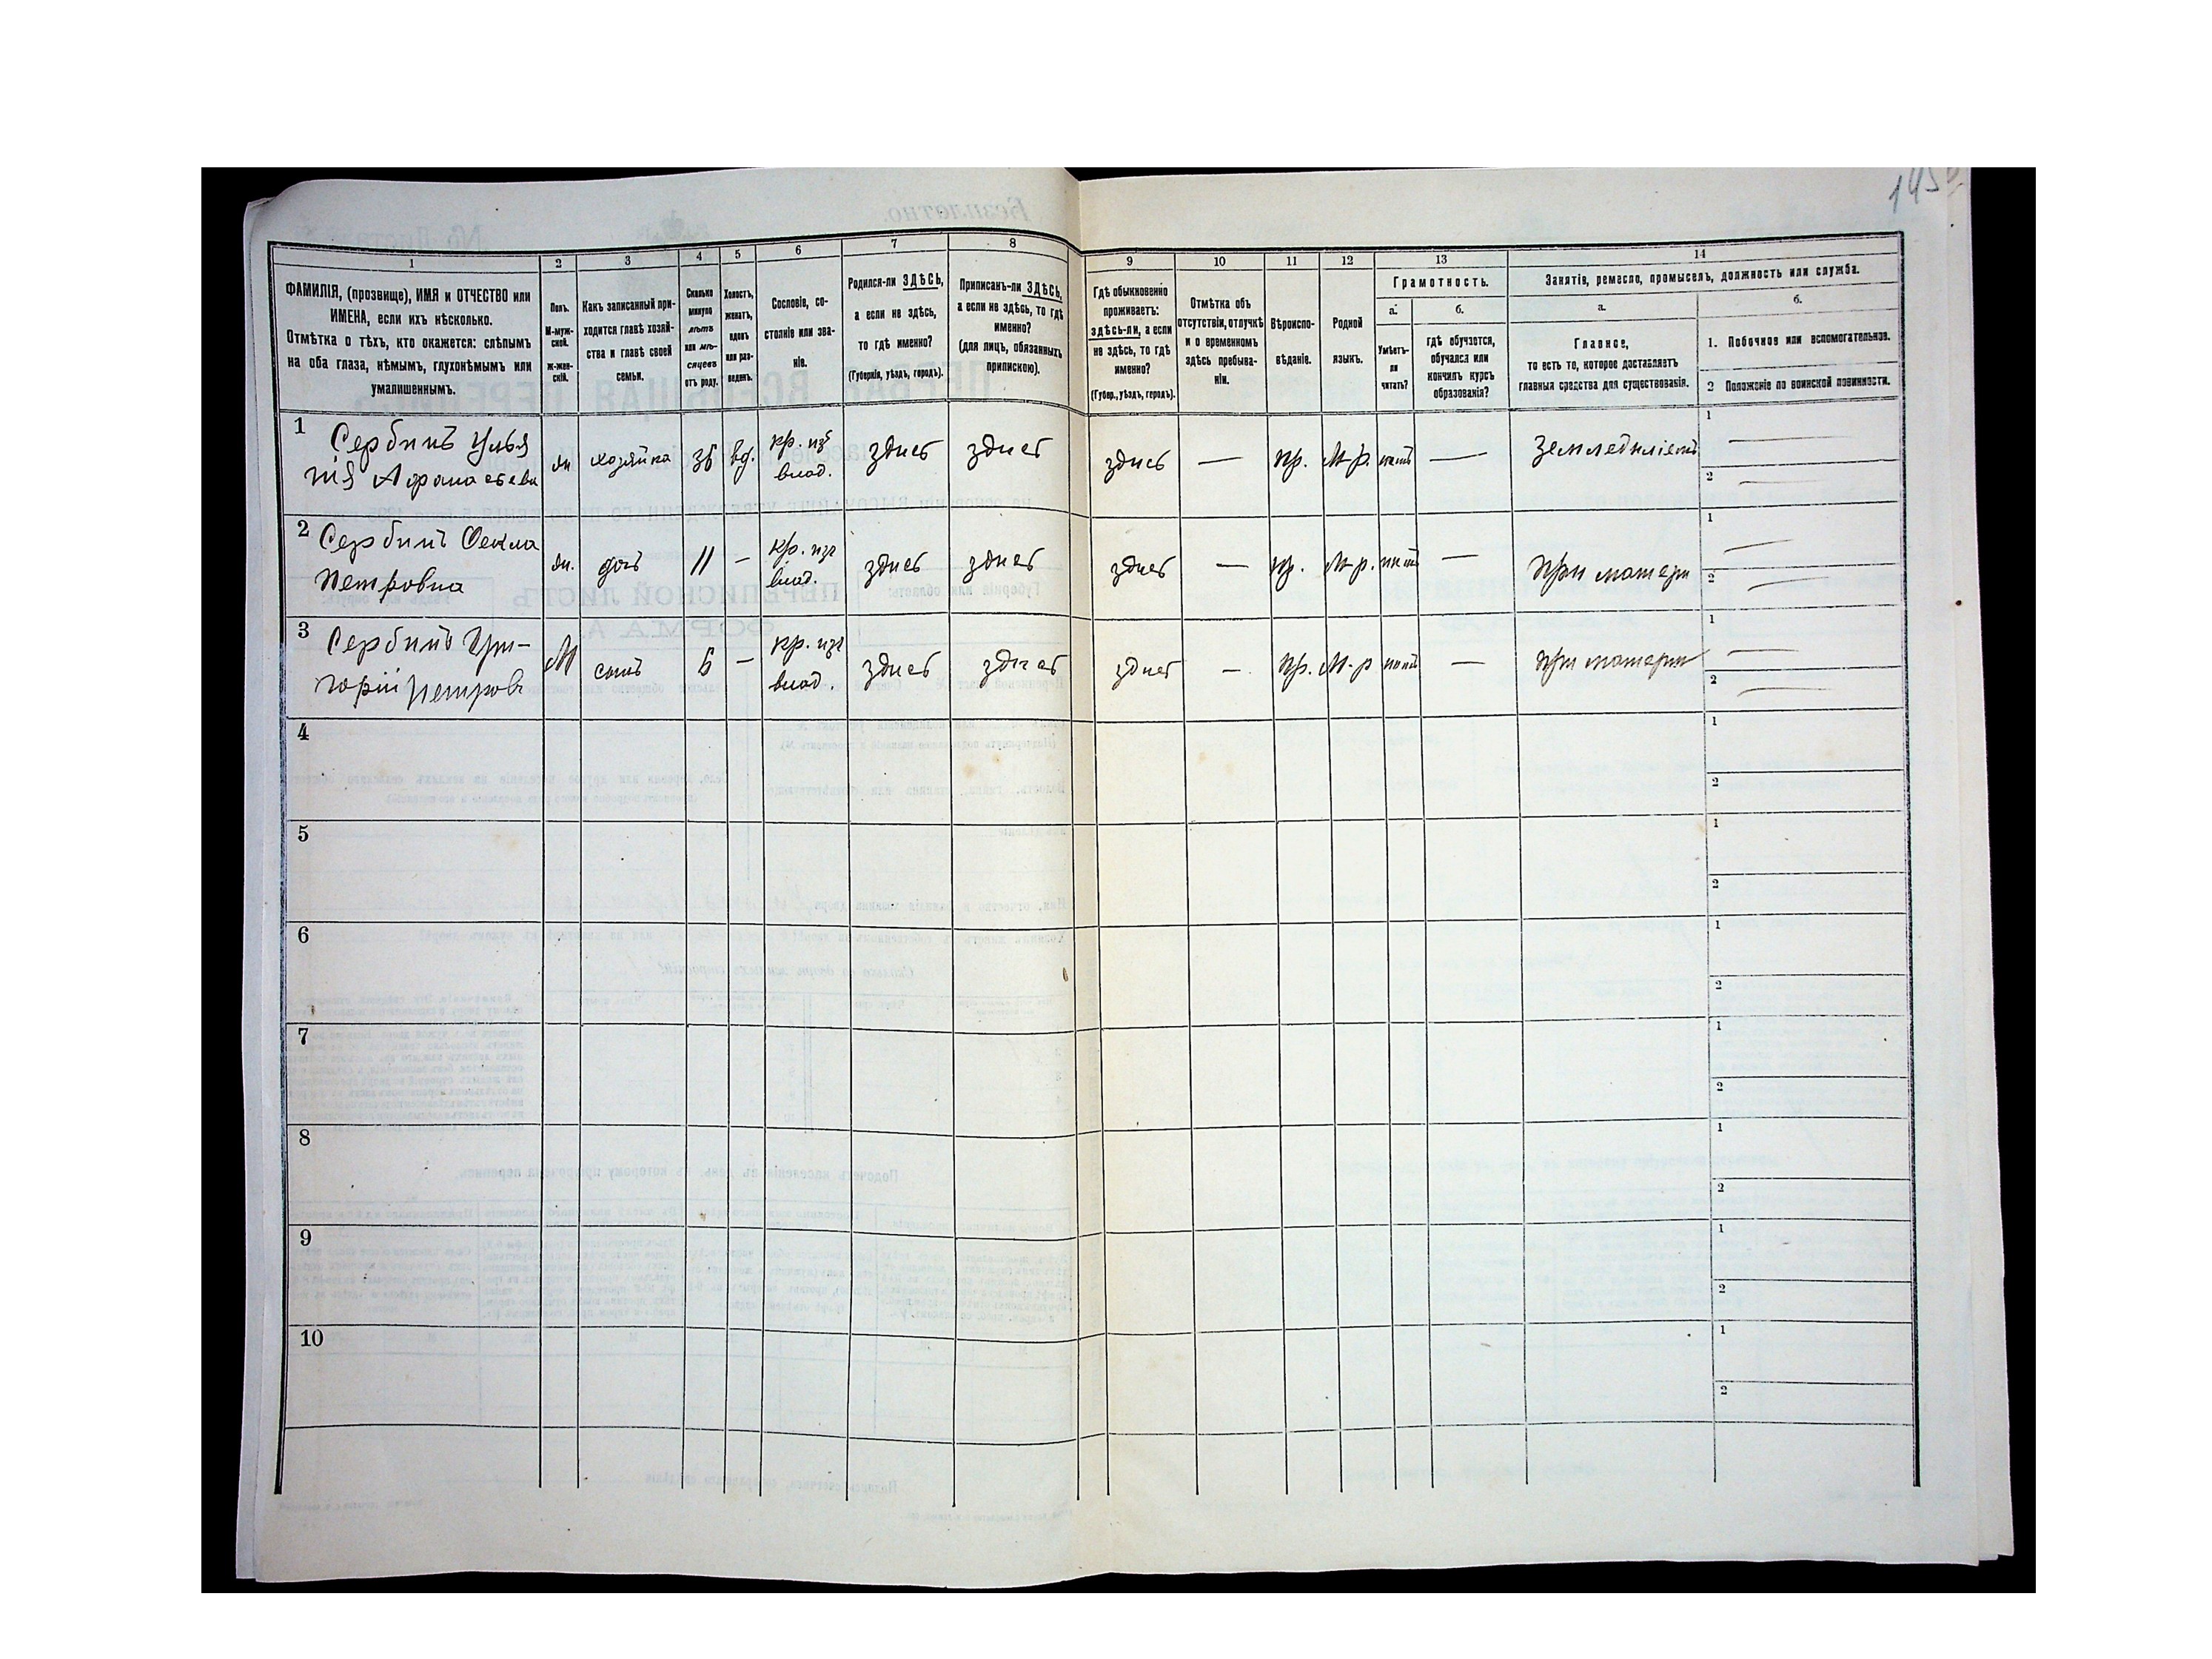 1 2 3 4 5 6 7 8 9 10 11 12 13 14
ФАМИЛІЯ, (прозвище), ИМЯ и ОТЧЕСТВО или
ИМЕНА, если ихъ нѣсколько.
Отмѣтка о тѣхъ, кто окажется: слѣпымъ
на оба глаза, нѣмымъ, глухонѣмымъ или
умалишеннымъ.
Полъ.
М-муж-
ской.
ж-жен-
скій.
Какъ записанный при-
ходится главѣ хозяй-
ства и главѣ своей
семьи.
Сколько
минуло
лѣтъ
или мѣ-
сяцевъ
отъ роду.
Холостъ,
женатъ,
вдовъ
или раз-
веденъ.
Сословіе, со-
стояніе или зва-
ніе.
Родился-ли ЗДѢСЬ,
а если не здѣсь,
то гдѣ именно?
(Губернія, уѣздъ, городъ).
Приписанъ-ли ЗДѢСЬ,
а если не здѣсь, то гдѣ
именно?
(для лицъ, обязанныхъ
припискою).
Гдѣ обыкновенно
проживаетъ:
здѣсь-ли, а если
не здѣсь, то гдѣ
именно?
(Губер., уѣздъ, городъ).
Отмѣтка объ
отсутствіи, отлучкѣ
и о временномъ
здѣсь пребыва-
ніи.
Вѣроиспо-
вѣданіе.
Родной
языкъ.
Грамотность.
а.
Умѣетъ-
ли
читать?
б.
гдѣ обучается,
обучался или
кончилъ курсъ
образованія?
Занятіе, ремесло, промыселъ, должность или служба.
а.
Главное,
то есть то, которое доставляетъ
главныя средства для существованія.
б.
1. Побочное или вспомогательное.
2 Положеніе по воинской повинности.
1 Сербинъ Улья
нія Афанасьева
жн хозяйка 36 вд. кр. изъ
влад.
здисъ здисъ здисъ — пр. М-р. нитъ — Земледиліемъ
1 —
2 —
2 Сербинъ Фекла
Петровна
жн. дочь 11 — кр. изъ
влад.
здисъ здисъ здисъ — пр. М-р. нитъ — При матери
1 —
2 —
3 Сербинъ Гри-
горій Петровъ
М сынъ 6 — кр. изъ
влад.
здисъ здисъ здисъ — пр. М-р нитъ — При матери
1 —
2 —
4
1
2
5
1
2
6
1
2
7
1
2
8
1
2
9
1
2
10
1
2